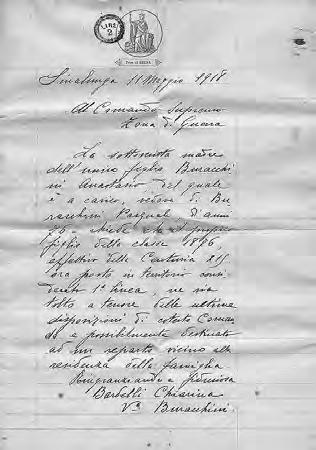 LIRE 2
Sinalunga 11 Maggio 1918
Al Comando Supremo
Zona di Guerra
La sottoscritta madre
dell'unico figlio Buracchi
ni Anastasio del quale
è a carico, vedova di Bu
racchini Pasquale d'anni
76 - chiede che il proprio
figlio della classe 1896,
effettivo della Centuria
ora posto in territorio consi
derato 1ª linea, ne sia
tolto a tenore delle ultime
disposizioni di cotesto Coman
do e possibilmente destinato
ad un reparto vicino alla
residenza della famiglia
Ringraziando
Bardelli Chiarina
Vª Buracchini